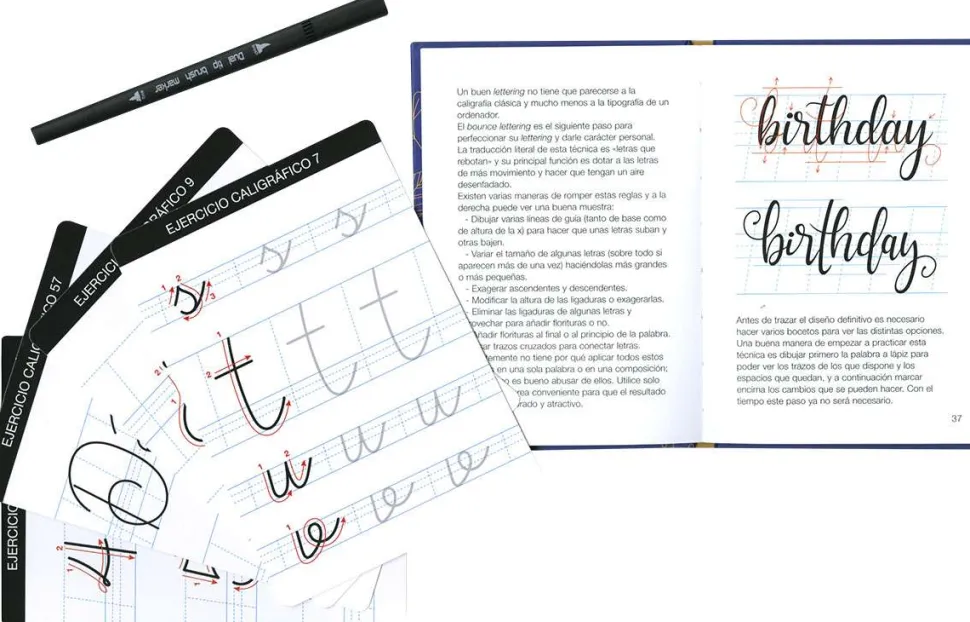 Dual tip brush marker
EJERCICIO CALIGRÁFICO 7
s s s
t t t
u u u
EJERCICI
RÁFICO 9
EJERCICIO CALI
CO 57
EJERCIC
Un buen lettering no tiene que parecerse a la
caligrafía clásica y mucho menos a la tipografía de un
ordenador.
El bounce lettering es el siguiente paso para
perfeccionar su lettering y darle carácter personal.
La traducción literal de esta técnica es «letras que
rebotan» y su principal función es dotar a las letras
de más movimiento y hacer que tengan un aire
desenfadado.
Existen varias maneras de romper estas reglas y a la
derecha puede ver una buena muestra:
- Dibujar varias líneas de guía (tanto de base como
de altura de la x) para hacer que unas letras suban y
otras bajen.
- Variar el tamaño de algunas letras (sobre todo si
aparecen más de una vez) haciéndolas más grandes
o más pequeñas.
- Exagerar ascendentes y descendentes.
- Modificar la altura de las ligaduras o exagerarlas.
- Eliminar las ligaduras de algunas letras y
ovechar para añadir florituras o no.
ñadir florituras al final o al principio de la palabra.
ar trazos cruzados para conectar letras.
temente no tiene por qué aplicar todos estos
en una sola palabra o en una composición;
o es bueno abusar de ellos. Utilice solo
rea conveniente para que el resultado
rado y atractivo.
birthday
birthday
Antes de trazar el diseño definitivo es necesario
hacer varios bocetos para ver las distintas opciones.
Una buena manera de empezar a practicar esta
técnica es dibujar primero la palabra a lápiz para
poder ver los trazos de los que dispone y los
espacios que quedan, y a continuación marcar
encima los cambios que se pueden hacer. Con el
tiempo este paso ya no será necesario.
37